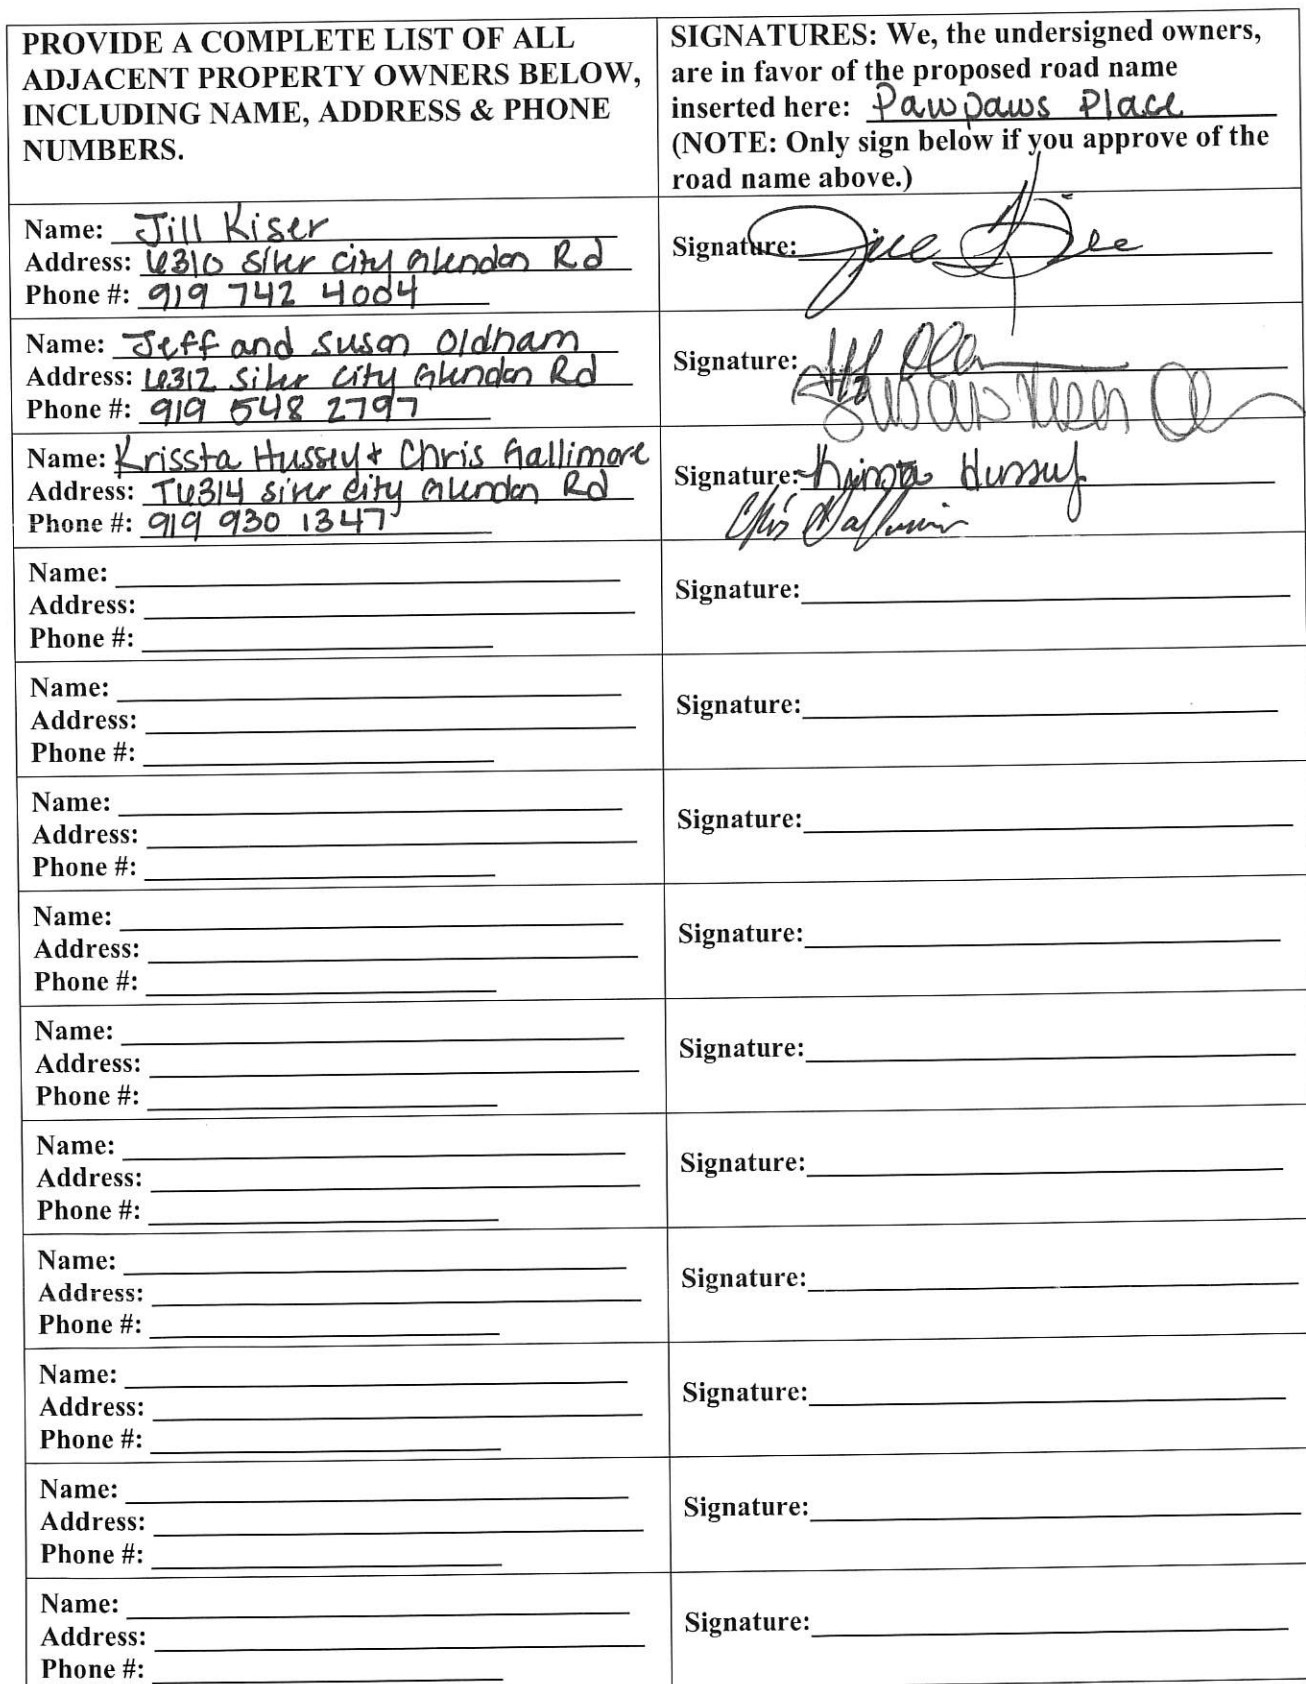 PROVIDE A COMPLETE LIST OF ALL
ADJACENT PROPERTY OWNERS BELOW,
INCLUDING NAME, ADDRESS & PHONE
NUMBERS.
SIGNATURES: We, the undersigned owners,
are in favor of the proposed road name
inserted here: Pawpaws Place
(NOTE: Only sign below if you approve of the
road name above.)
Name: Jill Kiser
Address: 6310 Siler City Glendon Rd
Phone #: 919 742 4004
Signature:
Name: Jeff and Susan Oldham
Address: 6312 Siler City Glendon Rd
Phone #: 919 548 2797
Signature:
Name: Krissta Hussey & Chris Gallimore
Address: 6314 Siler City Glendon Rd
Phone #: 919 930 1347
Signature: Krissta Hussey
Chris Gallimore
Name:
Address:
Phone #:
Signature:
Name:
Address:
Phone #:
Signature:
Name:
Address:
Phone #:
Signature:
Name:
Address:
Phone #:
Signature:
Name:
Address:
Phone #:
Signature:
Name:
Address:
Phone #:
Signature:
Name:
Address:
Phone #:
Signature:
Name:
Address:
Phone #:
Signature:
Name:
Address:
Phone #:
Signature:
Name:
Address:
Phone #:
Signature: